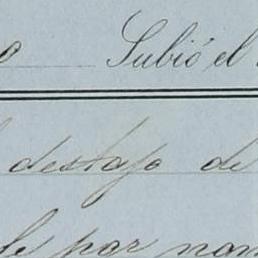 Subió el
destajo de
de por nom